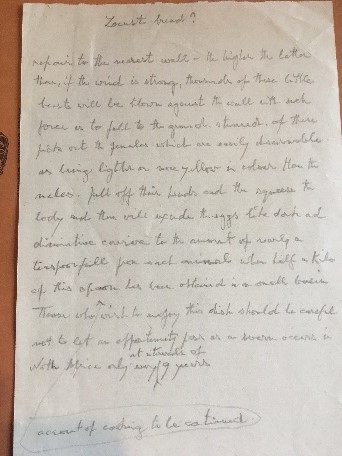 Locust bread?
repair to the nearest wall – the higher the better
then, if the wind is strong, thousands of these little
beasts will be blown against the wall with such
force as to fall to the ground stunned. of these
pick out the females which are easily discernible
as being lighter or more yellow in colour than the
males. pull off their heads and then squeeze the
body and there will exude the eggs like dark and
diminutive caviare to the amount of nearly a
teaspoonfull from each animal when half a Kilo
of this spawn has been obtained in a small basin
Those who wish to enjoy this dish should be careful
not to let an opportunity pass as a swarm occurs in
North Africa only at intervals of every 9 years
account of cooking to be continued